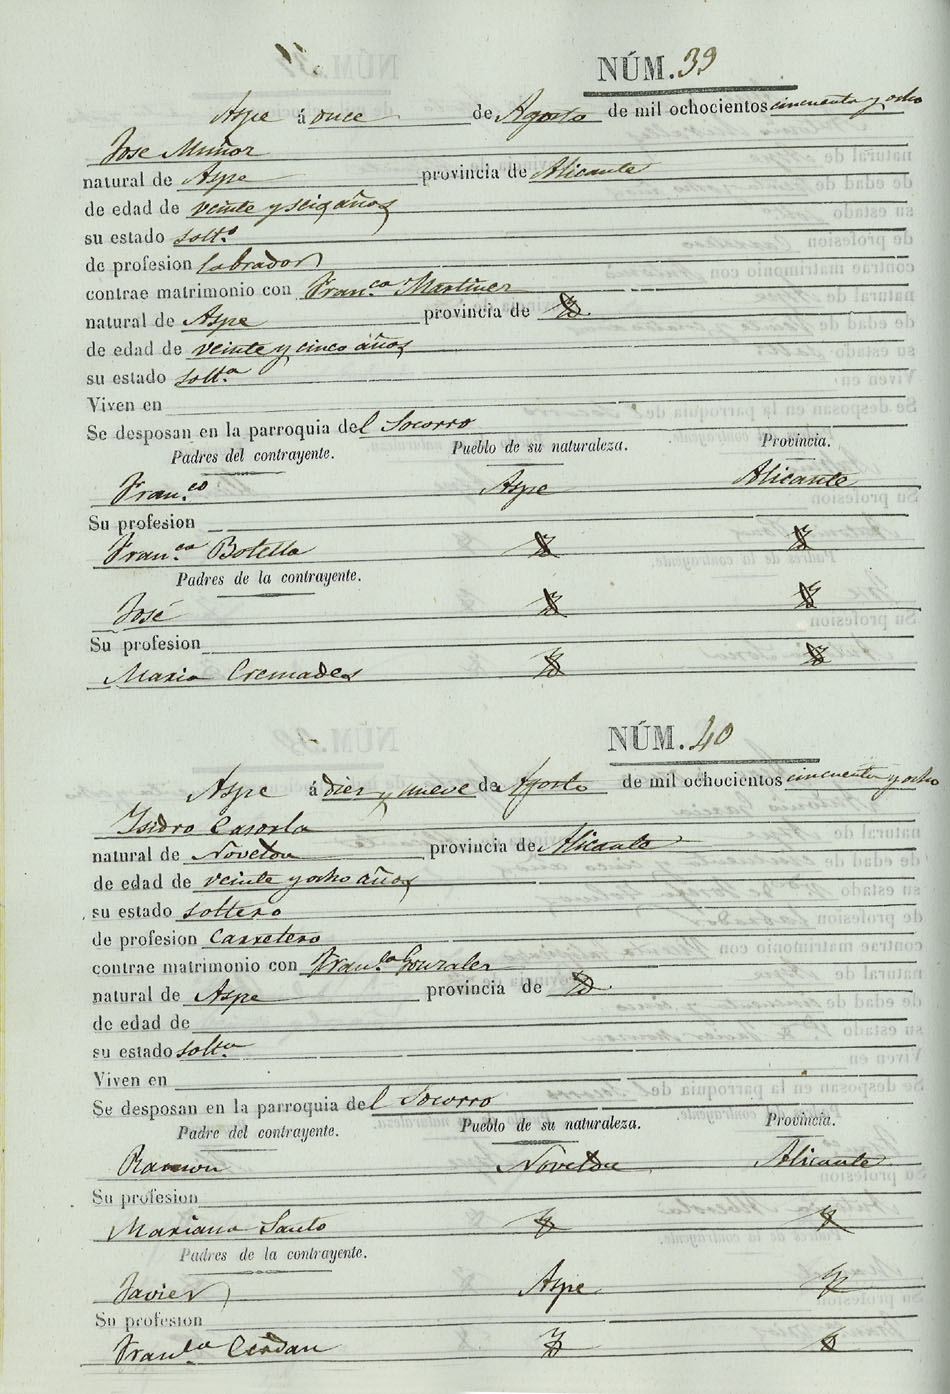 NÚM. 39
Aspe á once de Agosto de mil ochocientos cincuenta y ocho
Jose Muñoz
natural de Aspe provincia de Alicante
de edad de veinte y seis años
su estado solt.º
de profesion labrador
contrae matrimonio con Fran.ca Martinez
natural de Aspe provincia de
de edad de veinte y cinco años
su estado solt.a
Viven en
Se desposan en la parroquia del Socorro
Padres del contrayente. Pueblo de su naturaleza. Provincia.
Fran.co Aspe Alicante
Su profesion
Fran.ca Botella
Padres de la contrayente.
José
Su profesion
Maria Cremades
NÚM. 40
Aspe á diez y nueve de Agosto de mil ochocientos cincuenta y ocho
Isidro Casorla
natural de Novelda provincia de Alicante
de edad de veinte y ocho años
su estado soltero
de profesion Carretero
contrae matrimonio con Fran.ca Gonzalez
natural de Aspe provincia de
de edad de
su estado solt.a
Viven en
Se desposan en la parroquia del Socorro
Padre del contrayente. Pueblo de su naturaleza. Provincia.
Ramon Novelda Alicante
Su profesion
Mariana Santo
Padres de la contrayente.
Javier Aspe
Su profesion
Fran.ca Cerdan